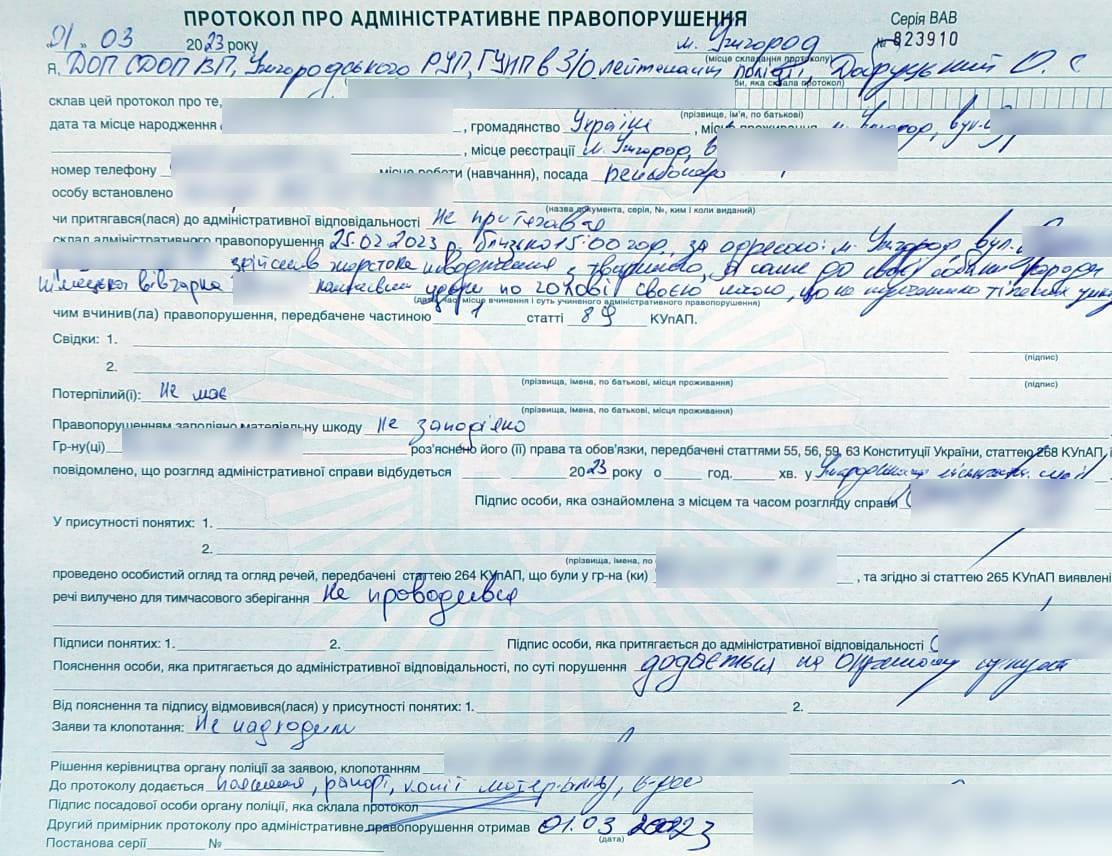 ПРОТОКОЛ ПРО АДМІНІСТРАТИВНЕ ПРАВОПОРУШЕННЯ
Серія ВАВ
«01» 03 2023 року м. Ужгород № 823910
(місце складання протоколу)
Я, ДОП СДОП ВП, Ужгородського РУП, ГУНП в З/О лейтенант поліції,
би, яка склала протокол)
склав цей протокол про те,
(прізвище, ім'я, по батькові)
дата та місце народження , громадянство Україні , місце проживання м. Ужгород, вул.
, місце реєстрації м. Ужгород, в
номер телефону місце роботи (навчання), посада пенсіонер
особу встановлено
(назва документа, серія, №, ким і коли виданий)
чи притягався(лася) до адміністративної відповідальності Не притягався
склад адміністративного правопорушення 25.02.2023 р. близько 15:00 год, за адресою: м. Ужгород, вул.
здійснив жорстоке поводження з твариною, а саме до своєї собаки породи
німецька вівчарка наносив удари по голові своєю , що не тілесних
(дата, час, місце вчинення і суть учиненого адміністративного правопорушення)
чим вчинив(ла) правопорушення, передбачене частиною 1 статті 89 КУпАП.
Свідки: 1.
(підпис)
2.
(прізвища, імена, по батькові, місця проживання) (підпис)
Потерпілий(і): Не має
(прізвища, імена, по батькові, місця проживання)
Правопорушенням заподіяно матеріальну шкоду Не заподіяно
Гр-ну(ці) роз'яснено його (її) права та обов'язки, передбачені статтями 55, 56, 59, 63 Конституції України, статтею 268 КУпАП, і
повідомлено, що розгляд адміністративної справи відбудеться 2023 року о год. хв. у
Підпис особи, яка ознайомлена з місцем та часом розгляду справи (
У присутності понятих: 1.
2.
(прізвища, імена, по
проведено особистий огляд та огляд речей, передбачені статтею 264 КУпАП, що були у гр-на (ки) , та згідно зі статтею 265 КУпАП виявлені
речі вилучено для тимчасового зберігання Не проводився
Підписи понятих: 1. 2. Підпис особи, яка притягається до адміністративної відповідальності (
Пояснення особи, яка притягається до адміністративної відповідальності, по суті порушення додається на окремому аркуші
Від пояснення та підпису відмовився(лася) у присутності понятих: 1. 2.
Заяви та клопотання: Не надходили
Рішення керівництва органу поліції за заявою, клопотанням
До протоколу додається пояснення, рапорт, копії матеріалів,
Підпис посадової особи органу поліції, яка склала протокол
Другий примірник протоколу про адміністративне правопорушення отримав 01.03.2023
(дата)
Постанова серії №